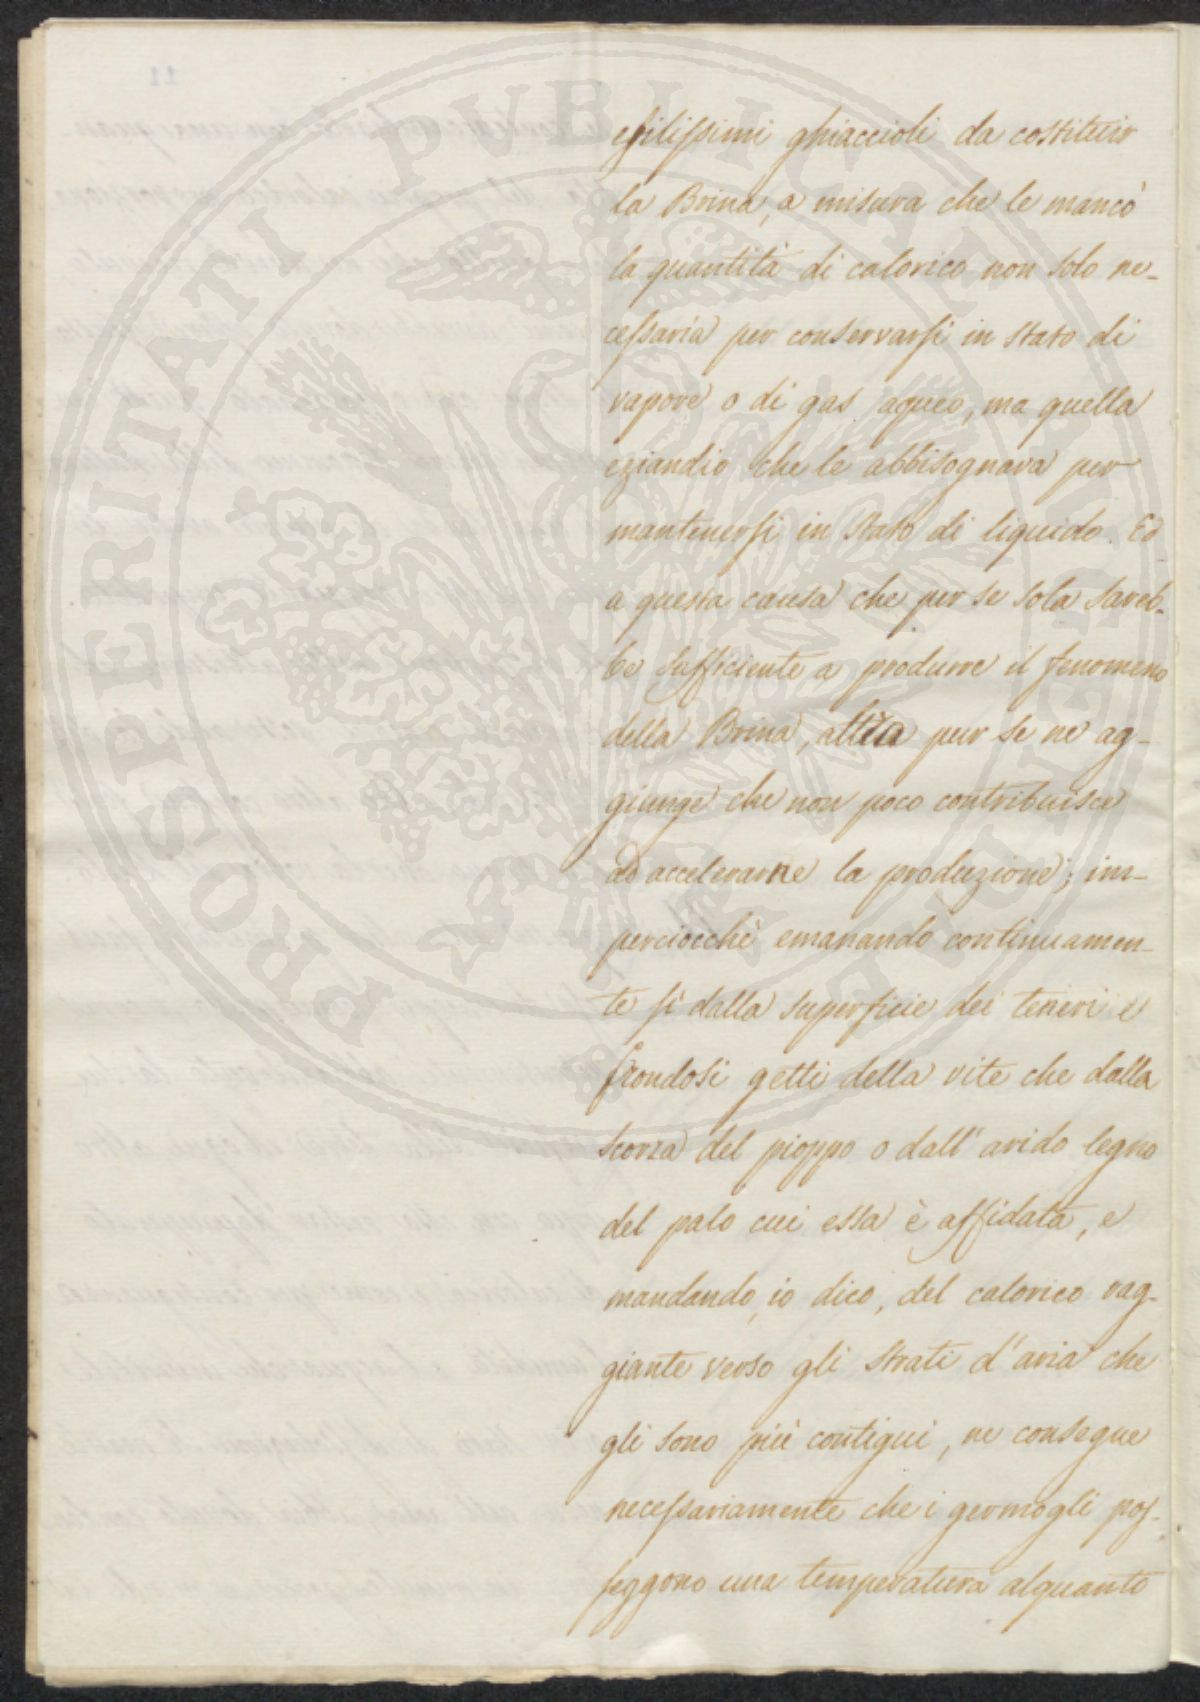 PROSPERITATI PUBLICAE AUGENDAE
esilissimi ghiaccioli da costituir
la Brina, a misura che le mancò
la quantità di calorico non solo ne-
cessaria per conservarsi in stato di
vapore o di gas aqueo, ma quella
eziandio che le abbisognava per
mantenersi in stato di liquido. Ed
a questa causa che per se sola sareb-
be sufficiente a produrre il fenomeno
della Brina, altra pur se ne ag-
giunge che non poco contribuisce
ad accelerarne la produzione; im-
perciocchè emanando continuamen-
te sì dalla superficie dei teneri e
frondosi getti della vite che dalla
scorza del pioppo o dall'arido legno
del palo cui essa è affidata, e
mandando, io dico, del calorico rag-
giante verso gli strati d'aria che
gli sono più contigui, ne consegue
necessariamente che i germogli pos-
seggono una temperatura alquanto